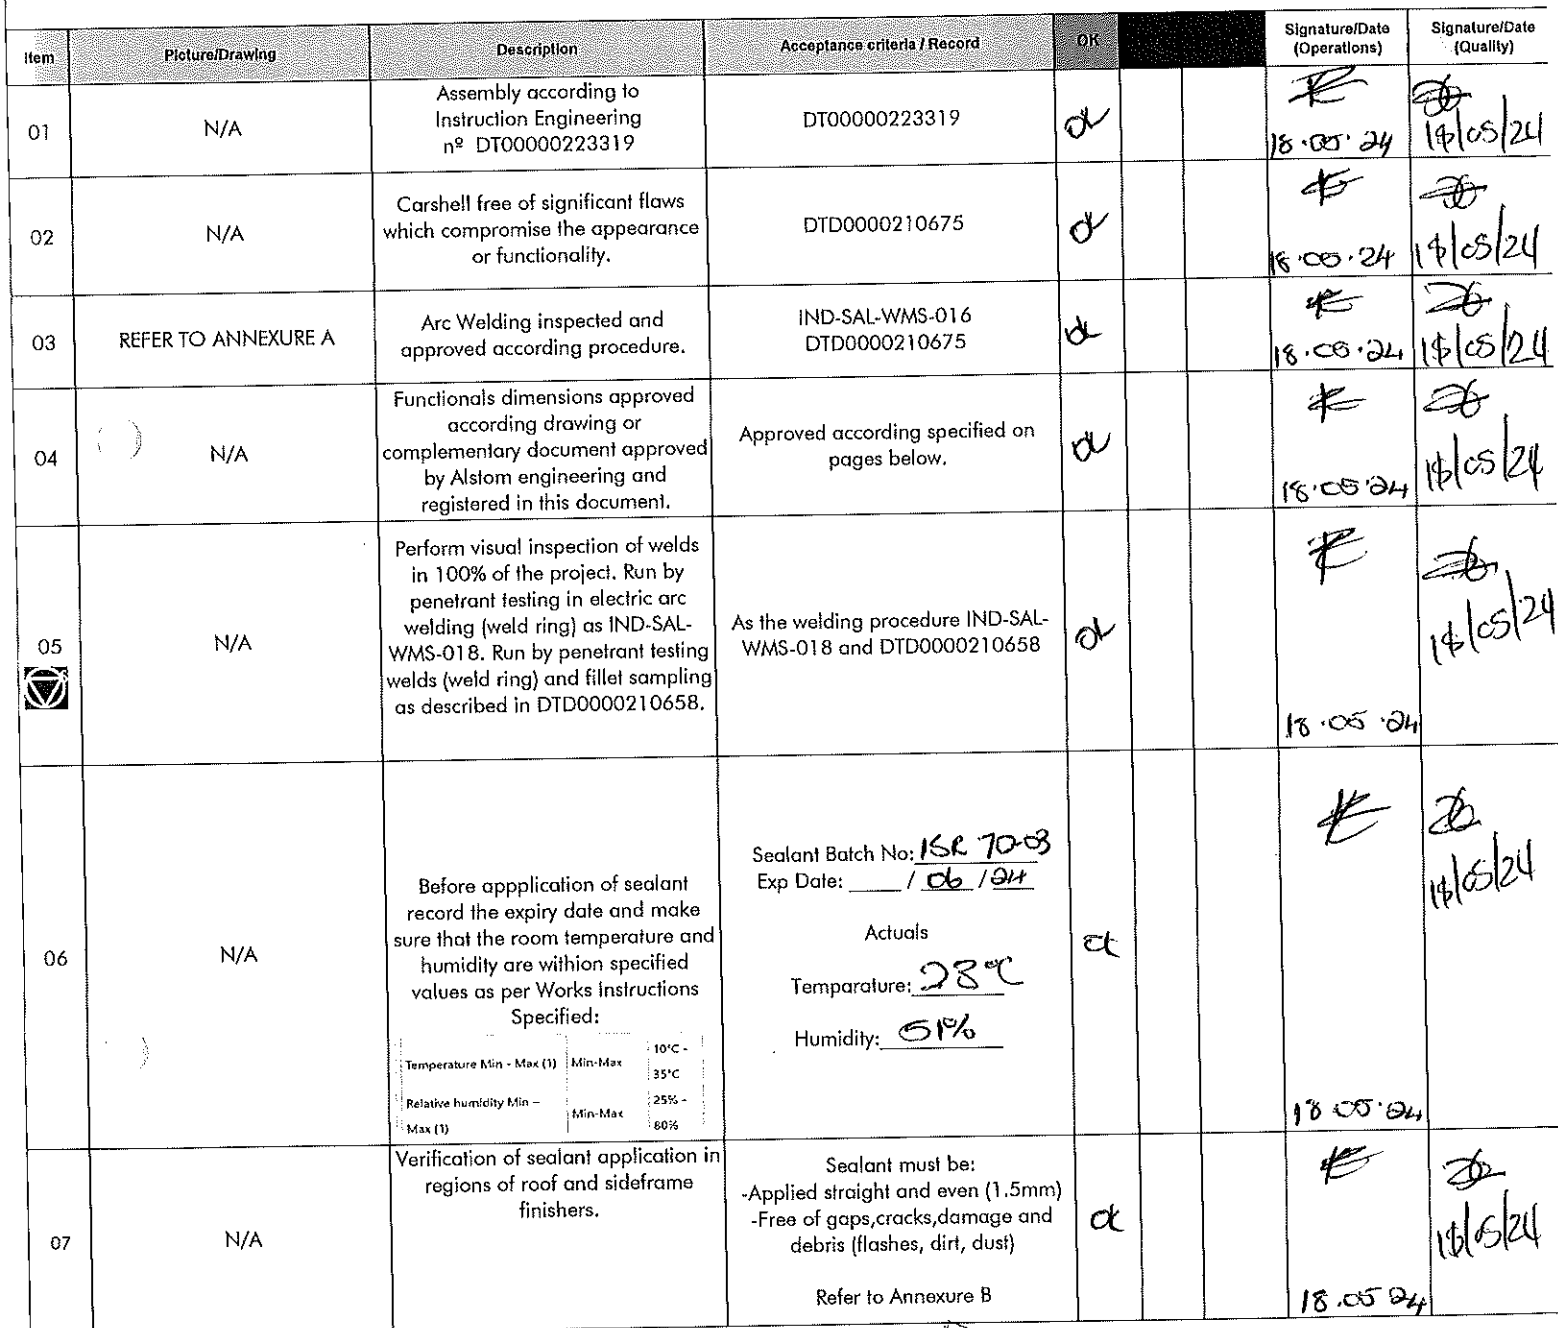 Item
Picture/Drawing
Description
Acceptance criteria / Record
OK
Signature/Date
(Operations)
Signature/Date
(Quality)
01
N/A
Assembly according to
Instruction Engineering
nº DT00000223319
DT00000223319
ok
18.05.24
18/05/24
02
N/A
Carshell free of significant flaws
which compromise the appearance
or functionality.
DTD0000210675
ok
18.05.24
18/05/24
03
REFER TO ANNEXURE A
Arc Welding inspected and
approved according procedure.
IND-SAL-WMS-016
DTD0000210675
ok
18.05.24
18/05/24
04
N/A
Functionals dimensions approved
according drawing or
complementary document approved
by Alstom engineering and
registered in this document.
Approved according specified on
pages below.
ok
18.05.24
18/05/24
05
N/A
Perform visual inspection of welds
in 100% of the project. Run by
penetrant testing in electric arc
welding (weld ring) as IND-SAL-
WMS-018. Run by penetrant testing
welds (weld ring) and fillet sampling
as described in DTD0000210658.
As the welding procedure IND-SAL-
WMS-018 and DTD0000210658
ok
18.05.24
18/05/24
06
N/A
Before appplication of sealant
record the expiry date and make
sure that the room temperature and
humidity are withion specified
values as per Works Instructions
Specified:
Temperature Min - Max (1) Min-Max 10°C -
35°C
Relative humidity Min –
Max (1) Min-Max 25% -
80%
Sealant Batch No: ISR 70-03
Exp Date: ____ / 06 / 24
Actuals
Temparature: 23°C
Humidity: 51%
ok
18.05.24
18/05/24
07
N/A
Verification of sealant application in
regions of roof and sideframe
finishers.
Sealant must be:
-Applied straight and even (1.5mm)
-Free of gaps,cracks,damage and
debris (flashes, dirt, dust)
Refer to Annexure B
ok
18.05.24
18/05/24